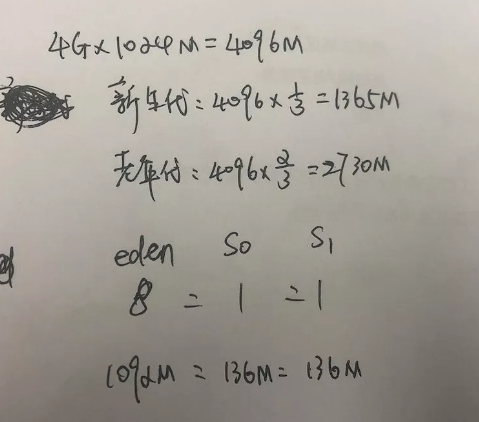 4G×1024M=4096M
新年代:4096×1/3=1365M
老年代:4096×2/3=2730M
eden S0 S1
8 = 1 = 1
1092M = 136M = 136M